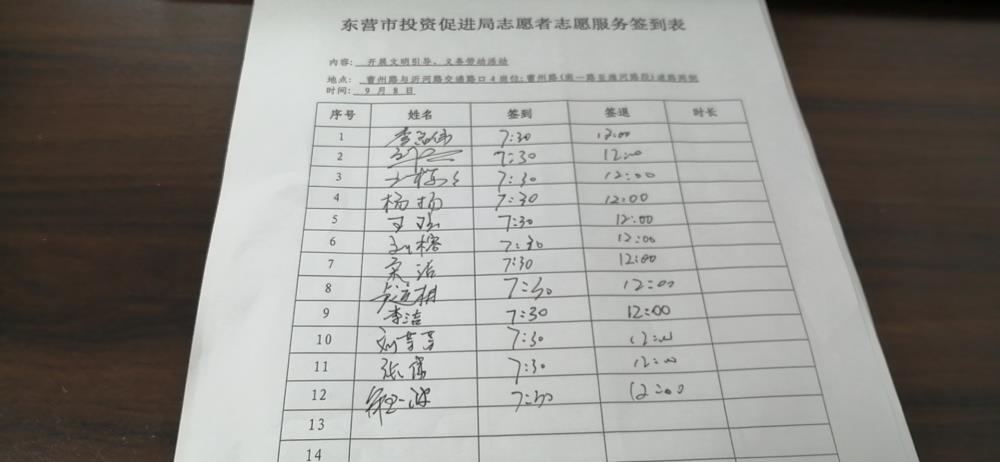 东营市投资促进局志愿者志愿服务签到表
内容: 开展文明引导、义务劳动活动
地点: 曹州路与沂河路交通路口4岗位;曹州路(南一路至淮河路段)道路两侧
时间: 9月8日
序号 姓名 签到 签退 时长
1 7:30 12:00
2 7:30 12:00
3 7:30 12:00
4 杨扬 7:30 12:00
5 7:30 12:00
6 7:30 12:00
7 7:30 12:00
8 7:30 12:00
9 李洁 7:30 12:00
10 刘芳芳 7:30 12:00
11 7:30 12:00
12 7:30 12:00
13
14